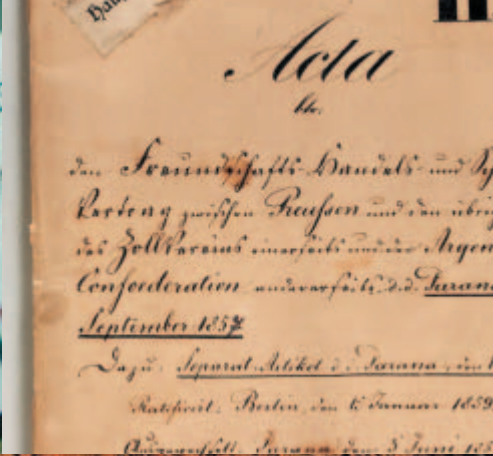 Acta
btr.
den Freundschafts- Handels- und Sch
Vertrag zwischen Preussen und den übri
des Zollvereins einerseits und der Argen
Confoederation andererseits d.d. Parana
September 1857
Dazu: Separat-Artikel d. d. Parana, den
Ratificirt: Berlin, den 15 Januar 1859
Ausgewechselt: Parana den 3 Juni 185